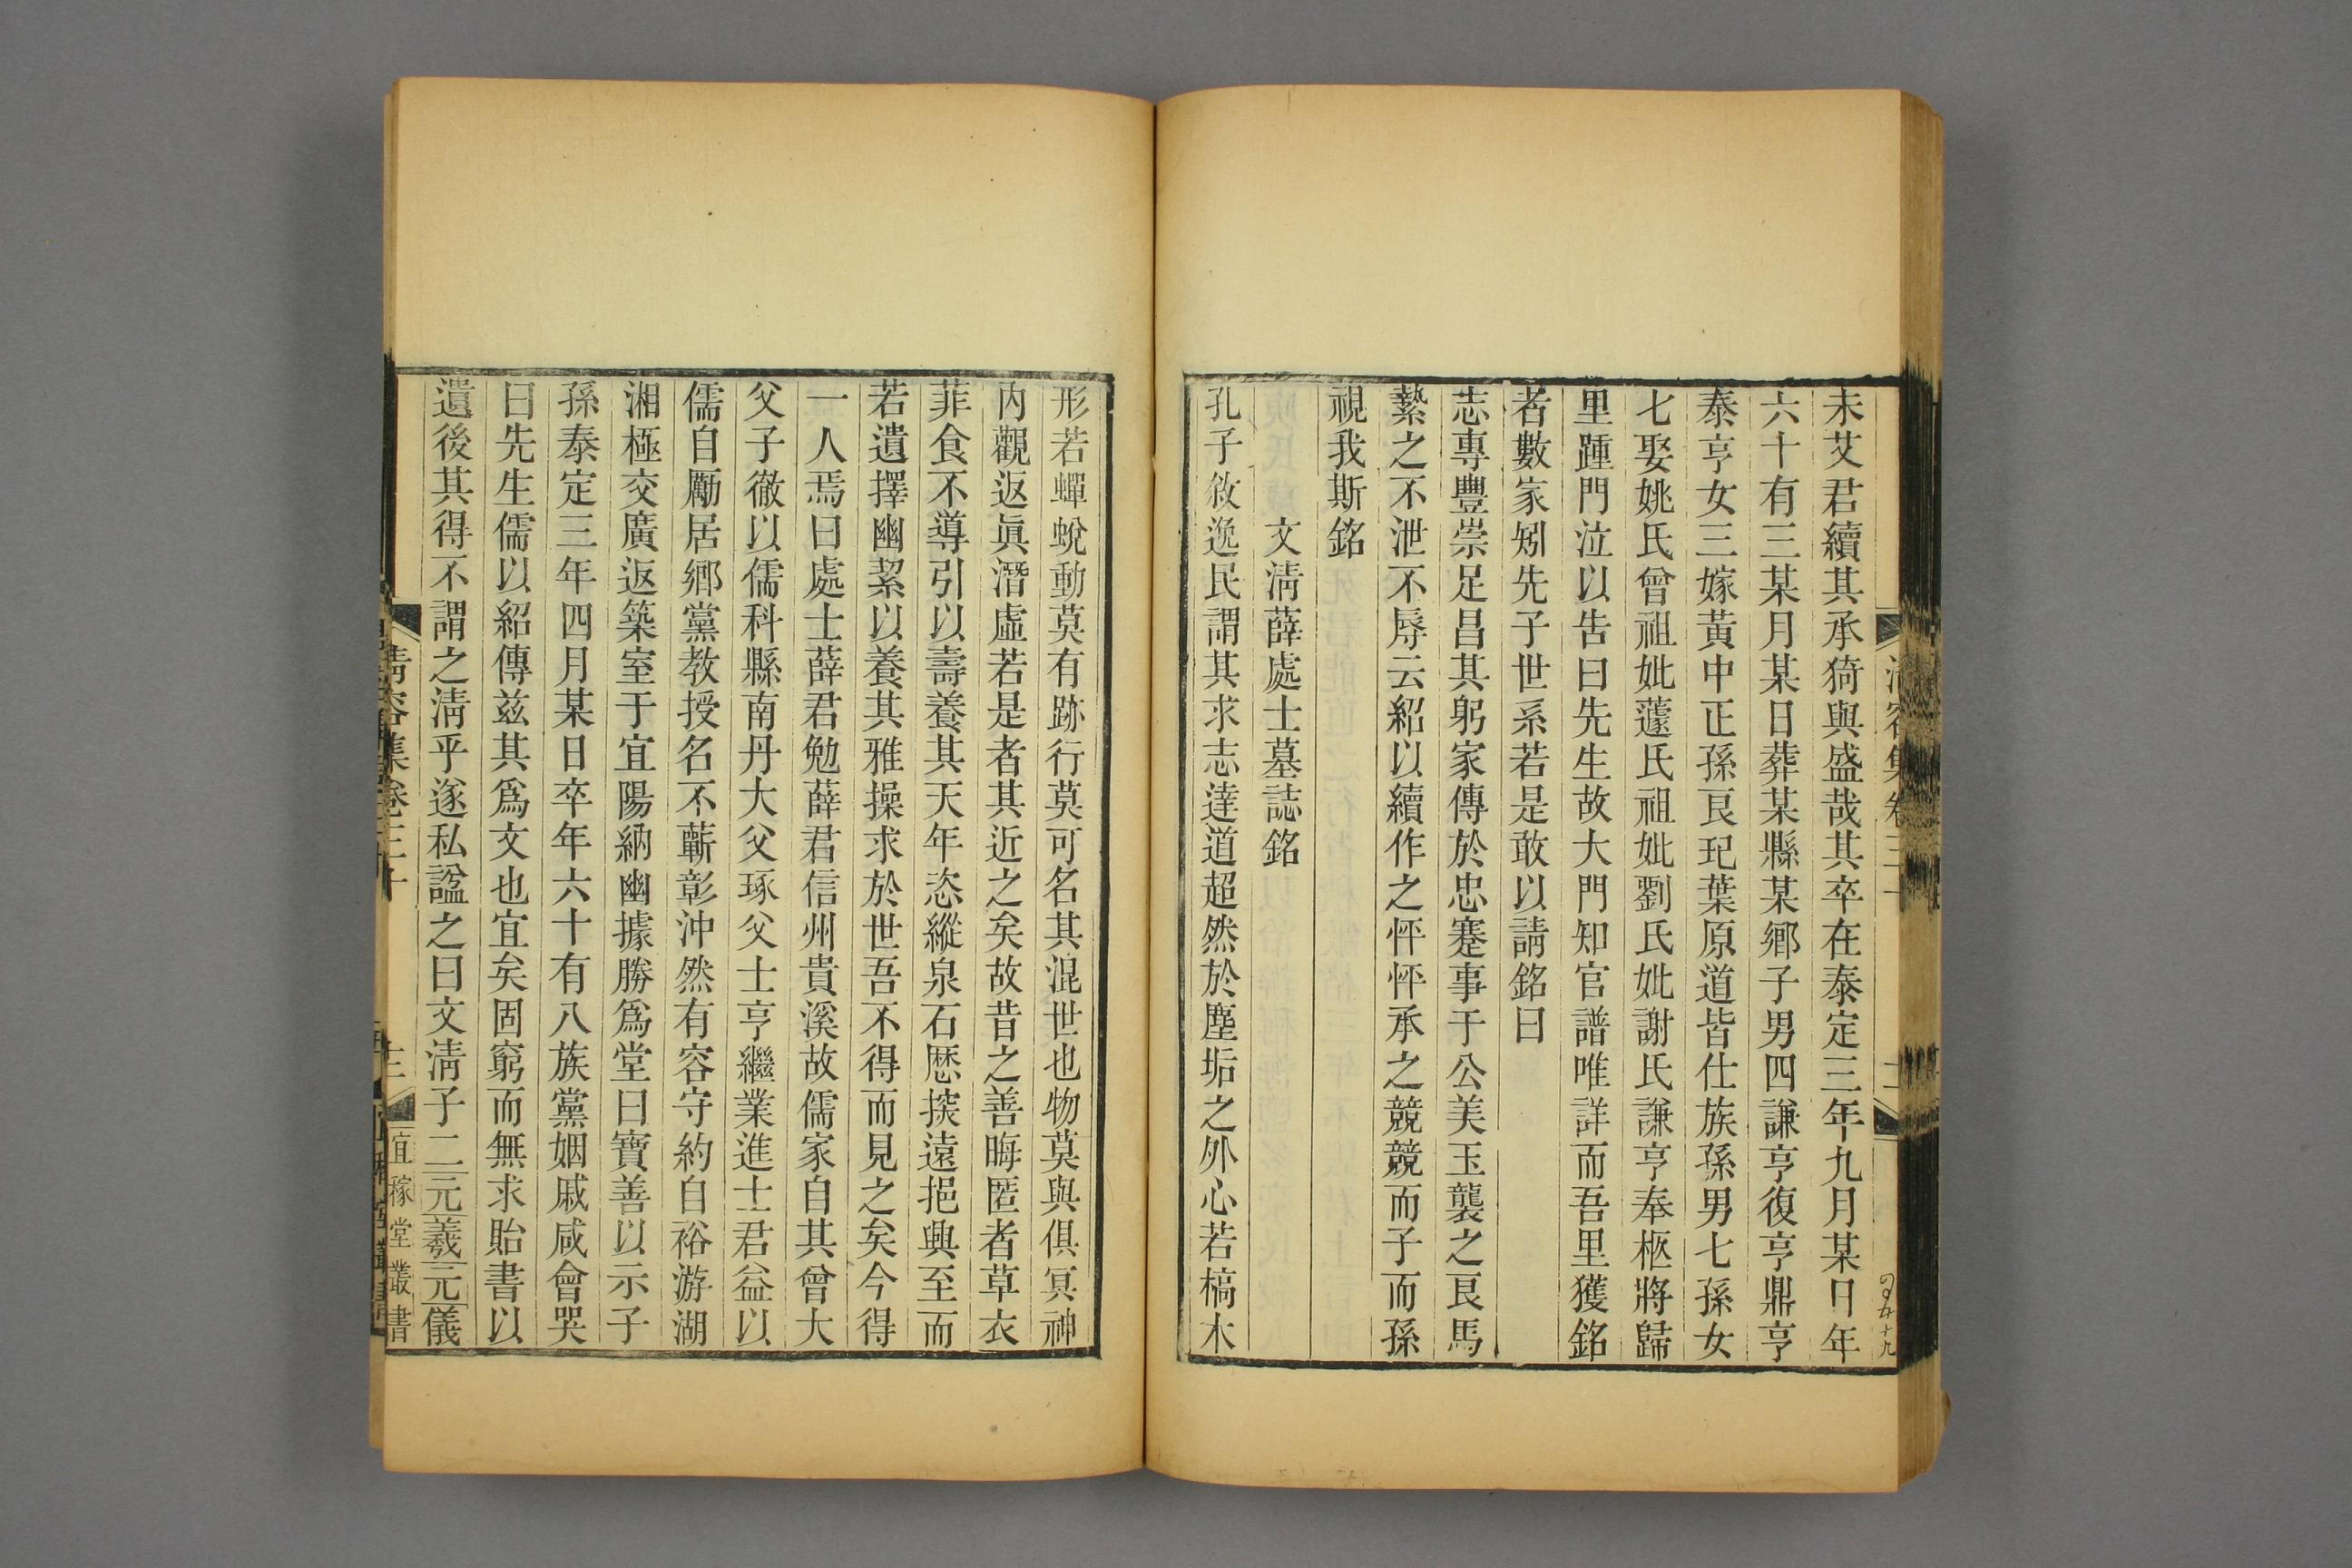 未艾君續其承猗與盛哉其卒在泰定三年九月某日年
六十有三某月某日葬某縣某鄉子男四謙亨復亨鼎亨
泰亨女三嫁黃中正孫艮玘葉原道皆仕族孫男七孫女
七娶姚氏曾祖妣蘧氏祖妣劉氏妣謝氏謙亨奉柩將歸
里踵門泣以告曰先生故大門知官譜唯詳而吾里獲銘
者數家矧先子世系若是敢以請銘曰
志專豐崇足昌其躬家傳於忠蹇事于公美玉襲之艮馬
縶之不泄不辱云紹以續作之怦怦承之競競而子而孫
視我斯銘
文淸薛處士墓誌銘
孔子敘逸民謂其求志達道超然於塵垢之外心若槁木
形若蟬蛻動莫有跡行莫可名其混世也物莫與俱冥神
內觀返眞潛虛若是者其近之矣故昔之善晦匿者草衣
菲食不導引以壽養其天年恣縱泉石厯掞遠挹興至而
若遺擇幽絜以養其雅操求於世吾不得而見之矣今得
一人焉曰處士薛君勉薛君信州貴溪故儒家自其曾大
父子徹以儒科縣南丹大父琢父士亨繼業進士君益以
儒自勵居鄉黨教授名不蘄彰沖然有容守約自裕游湖
湘極交廣返築室于宜陽納幽據勝爲堂曰寶善以示子
孫泰定三年四月某日卒年六十有八族黨姻戚咸會哭
曰先生儒以紹傳茲其爲文也宜矣固窮而無求貽書以
遺後其得不謂之淸乎遂私諡之曰文淸子二元羲元儀
淸容集卷三十
十二
宜稼堂叢書